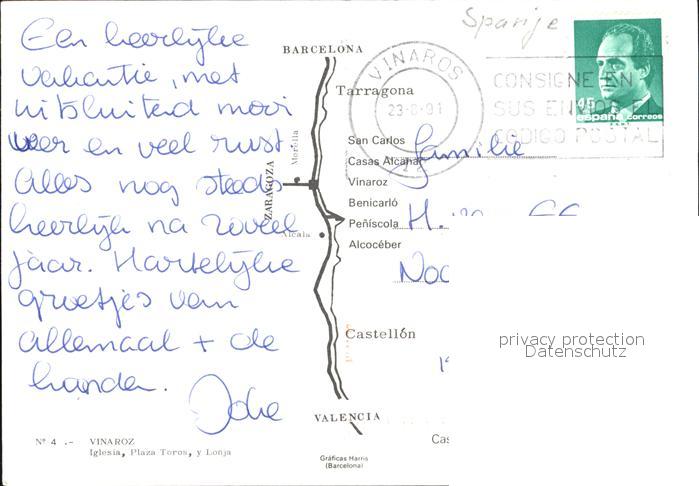 Een heerlijke
vakantie, met
uitsluitend mooi
weer en veel rust
Alles nog steeds
heerlijk na zoveel
jaar. Hartelijke
groetjes van
allemaal + de
honden.
BARCELONA
Tarragona
San Carlos
Casas Alcanar
Morella
Vinaroz
ZARAGOZA
Benicarló
Peñíscola
Alcala
Alcocéber
Castellón
VALENCIA
Nº 4 .- VINAROZ
Iglesia, Plaza Toros, y Lonja
Gráficas Harris
(Barcelona)
Spanje
VINAROS
CONSIGNE EN
SUS ENVIOS
CODIGO POSTAL
45
españa correos
familie
H.
Cas
privacy protection
Datenschutz